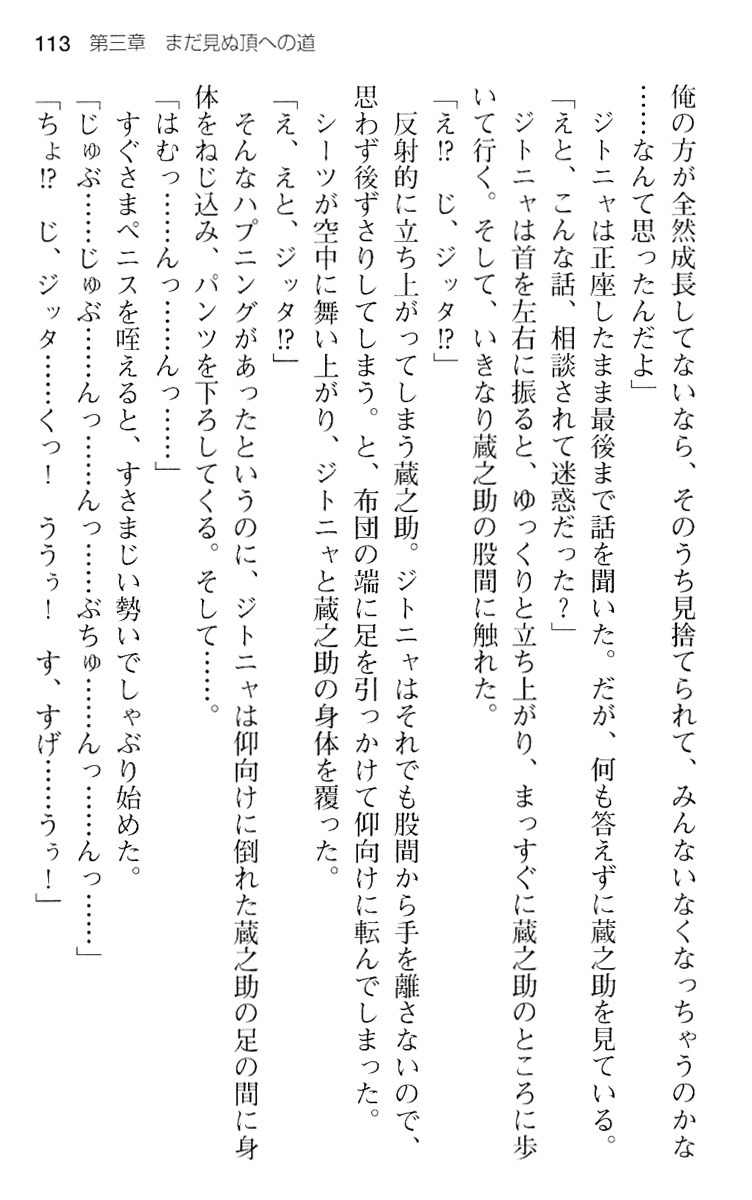 113 第三章　まだ見ぬ頂への道
俺の方が全然成長してないなら、そのうち見捨てられて、みんないなくなっちゃうのかな
……なんて思ったんだよ」
　ジトニャは正座したまま最後まで話を聞いた。だが、何も答えずに蔵之助を見ている。
「えと、こんな話、相談されて迷惑だった？」
　ジトニャは首を左右に振ると、ゆっくりと立ち上がり、まっすぐに蔵之助のところに歩
いて行く。そして、いきなり蔵之助の股間に触れた。
「え!?　じ、ジッタ!?」
　反射的に立ち上がってしまう蔵之助。ジトニャはそれでも股間から手を離さないので、
思わず後ずさりしてしまう。と、布団の端に足を引っかけて仰向けに転んでしまった。
　シーツが空中に舞い上がり、ジトニャと蔵之助の身体を覆った。
「え、えと、ジッタ!?」
　そんなハプニングがあったというのに、ジトニャは仰向けに倒れた蔵之助の足の間に身
体をねじ込み、パンツを下ろしてくる。そして……。
「はむっ……んっ……んっ……」
　すぐさまペニスを咥えると、すさまじい勢いでしゃぶり始めた。
「じゅぶ……じゅぶ……んっ……んっ……ぶちゅ……んっ……んっ……」
「ちょ!?　じ、ジッタ……くっ！　ううぅ！　す、すげ……うぅ！」